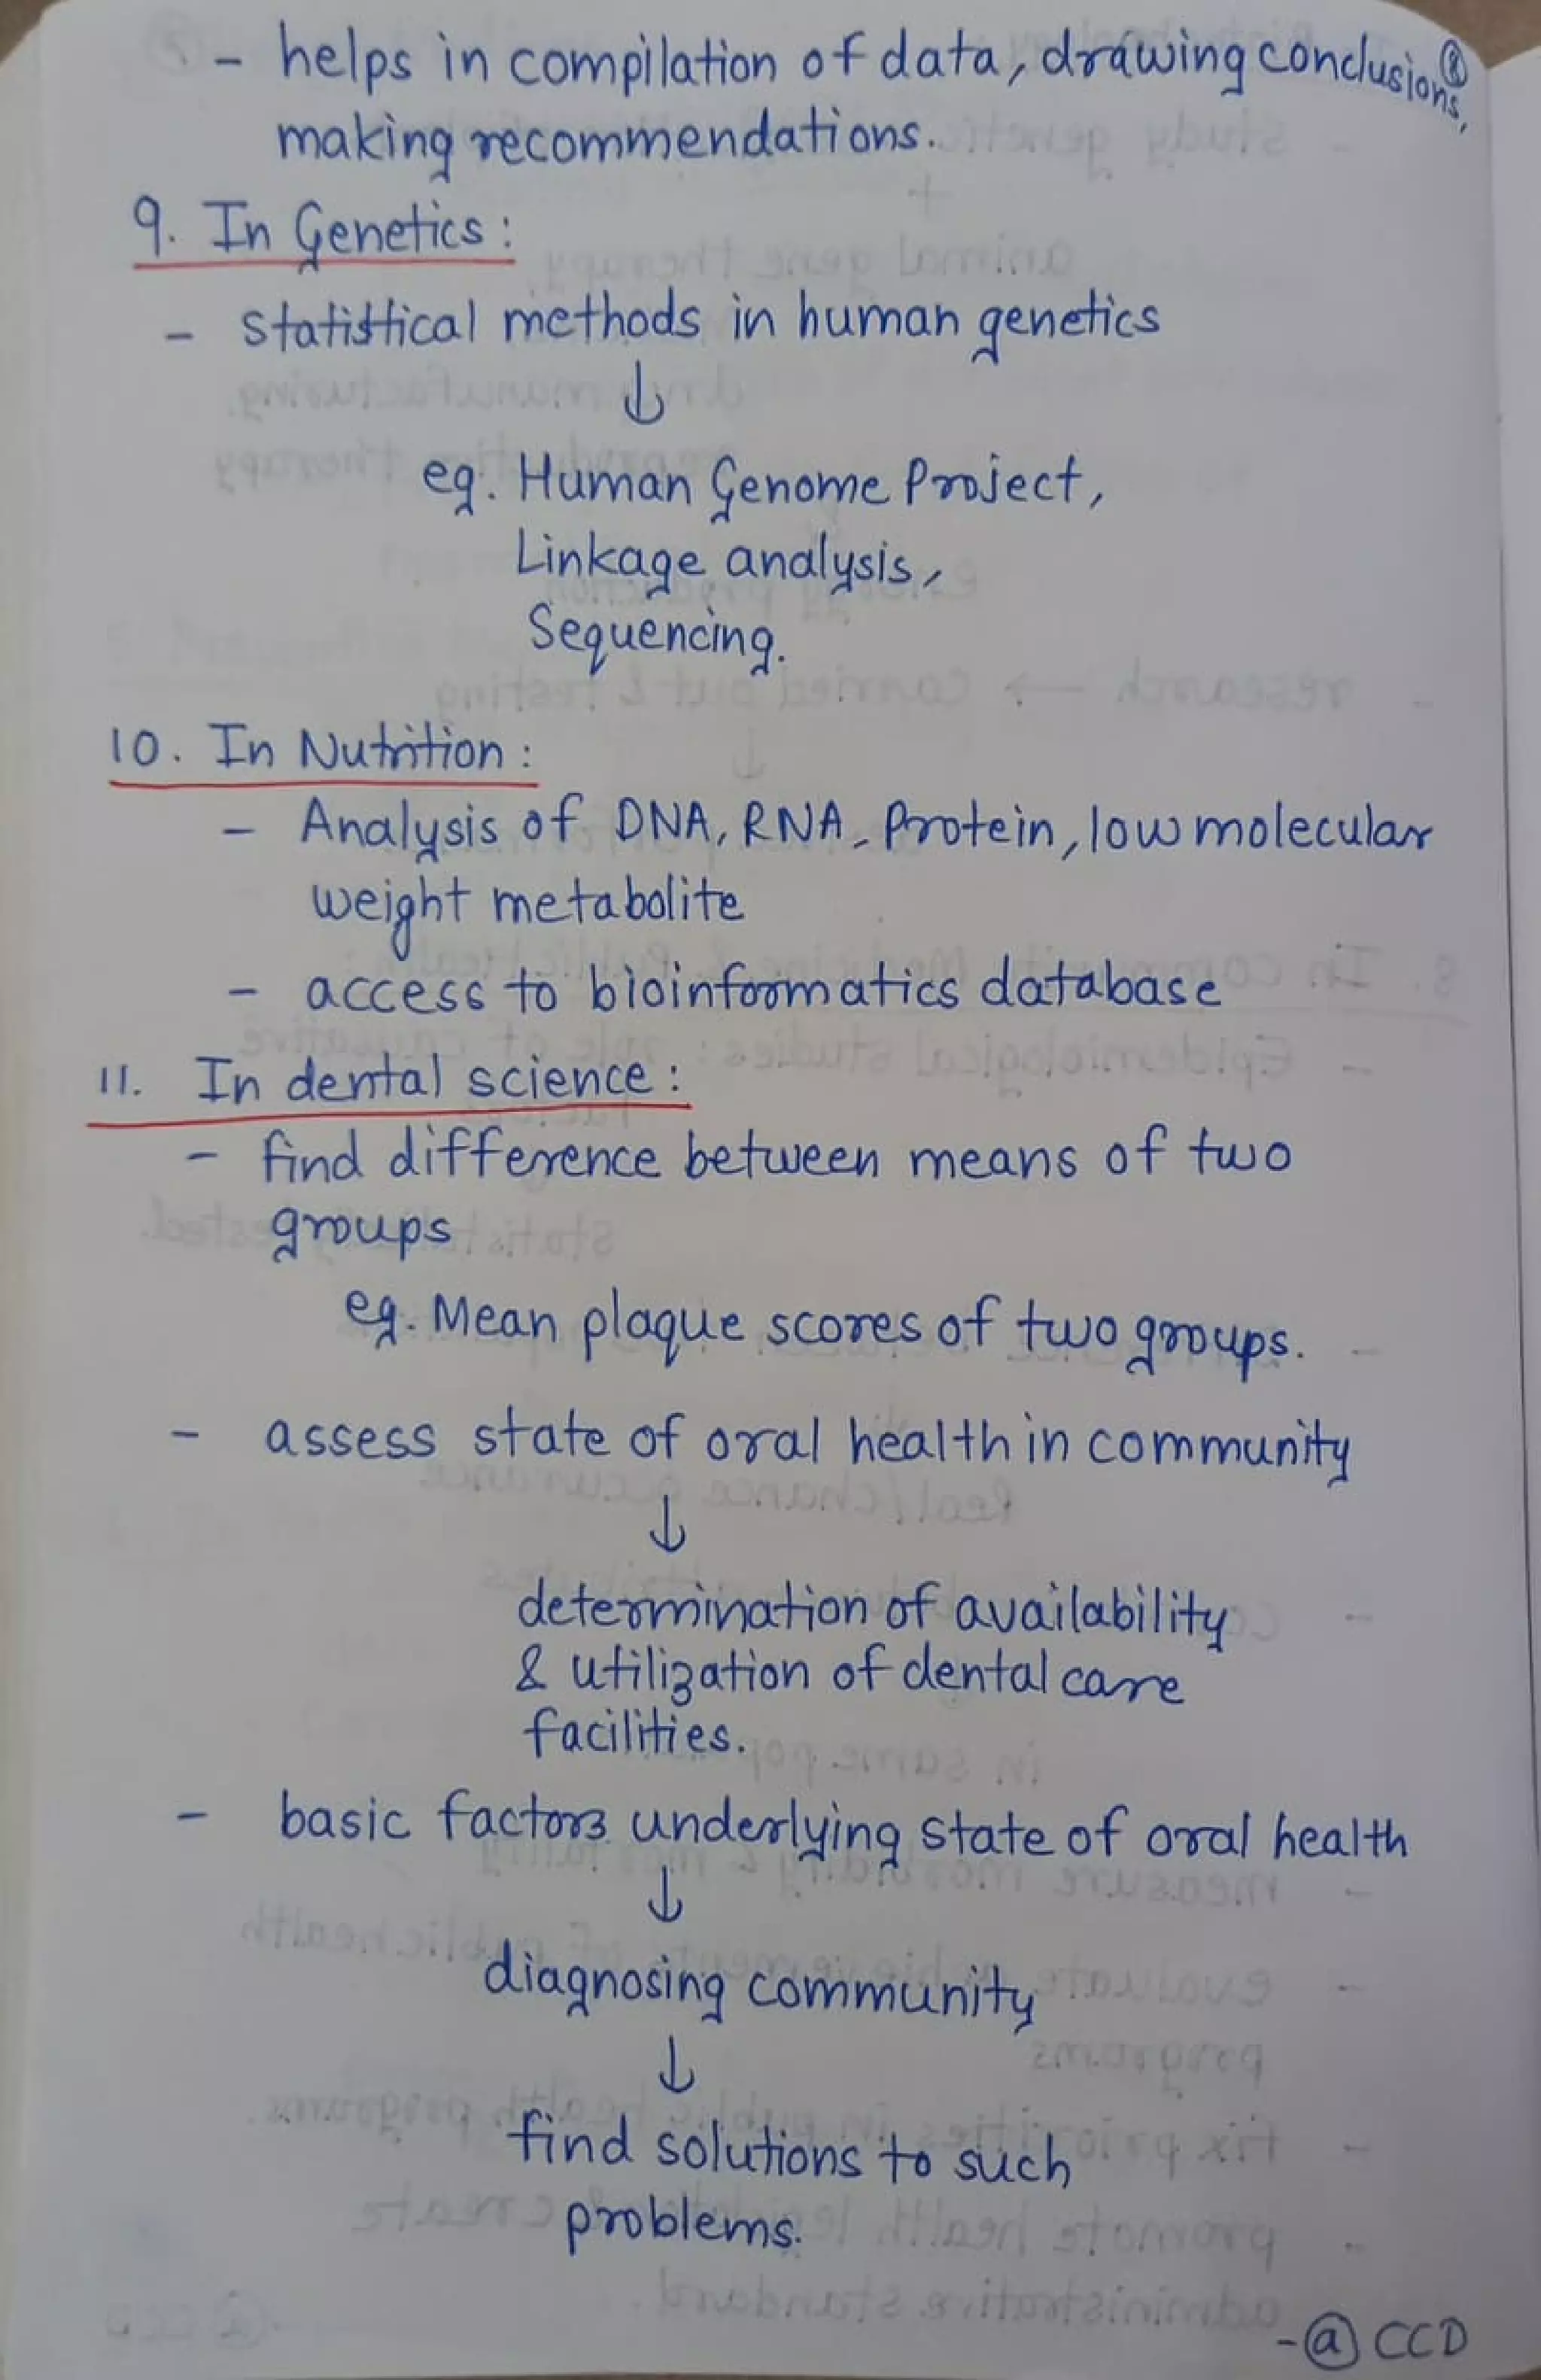 - helps in compilation of data, drawing conclusions, ⑧
making recommendations.
9. In Genetics :
- statistical methods in human genetics
↓
eg. Human Genome Project,
Linkage analysis,
Sequencing.
10. In Nutrition :
- Analysis of DNA, RNA, Protein, low molecular
weight metabolite
- access to bioinformatics database
11. In dental science :
- find difference between means of two
groups
eg. Mean plaque scores of two groups.
- assess state of oral health in community
↓
determination of availability
& utilization of dental care
facilities.
- basic factors underlying state of oral health
↓
diagnosing community
↓
find solutions to such
problems.
-@ CCD